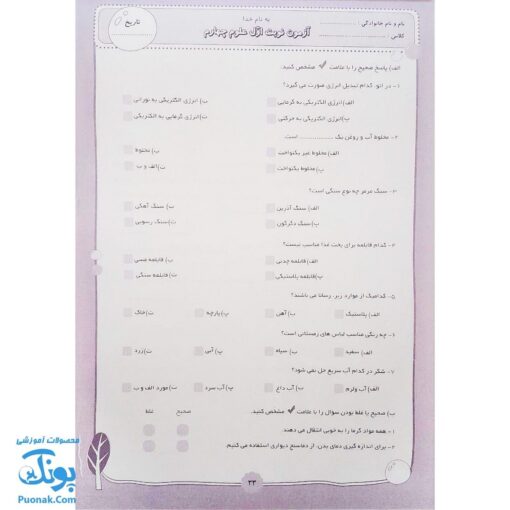 به نام خدا
نام و نام خانوادگی :
آزمون نوبت اوّل علوم چهارم
تاریخ
کلاس :
الف) پاسخ صحیح را با علامت ✓ مشخص کنید.
۱- در اتو، کدام تبدیل انرژی صورت می گیرد؟
الف) انرژی الکتریکی به گرمایی ب) انرژی الکتریکی به نورانی
پ) انرژی الکتریکی به حرکتی ت) انرژی گرمایی به الکتریکی
۲- مخلوط آب و روغن یک .................. است.
الف) مخلوط غیر یکنواخت ب) محلول
پ) مخلوط یکنواخت ت) الف و ب
۳- سنگ مرمر چه نوع سنگی است؟
الف) سنگ آذرین ب) سنگ آهکی
پ) سنگ دگرگون ت) سنگ رسوبی
۴- کدام قابلمه برای پخت غذا مناسب نیست؟
الف) قابلمه چدنی ب) قابلمه مسی
پ) قابلمه پلاستیکی ت) قابلمه سنگی
۵- کدامیک از موارد زیر، رسانا می باشند؟
الف) پلاستیک ب) آهن پ) پارچه ت) خاک
۶- چه رنگی مناسب لباس های زمستانی است؟
الف) سفید ب) سیاه پ) آبی ت) زرد
۷- شکر در کدام آب سریع حل نمی شود؟
الف) آب ولرم ب) آب داغ پ) آب سرد ت) مورد الف و ب
ب) صحیح یا غلط بودن سوال را با علامت ✓ مشخص کنید.
صحیح غلط
۱- همه مواد گرما را به خوبی انتقال می دهند.
۲- برای اندازه گیری دمای بدن، از دماسنج دیواری استفاده می کنیم.
۲۳
محصولات آموزشی
پونک
Puonak.Com